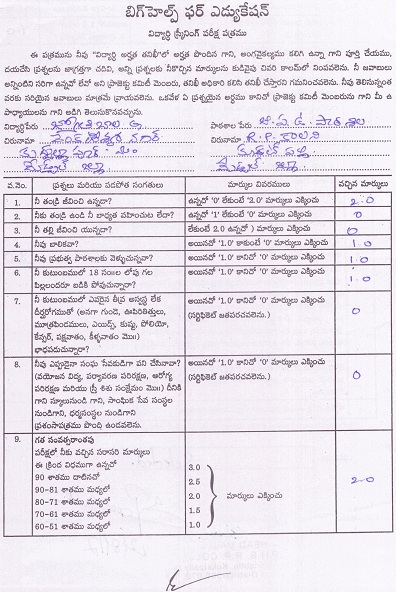 బిగ్‌హెల్ప్ ఫర్ ఎడ్యుకేషన్
విద్యార్ధి స్క్రీనింగ్ పరీక్ష పత్రము
ఈ పత్రమును నీవు "విద్యార్ధి అర్హత తనిఖీ"లో అర్హత పొందిన గాని, అంగవైకల్యము కలిగి ఉన్నా గాని పూర్తి చేయము,
దయచేసి ప్రశ్నలను జాగ్రత్తగా చదివి, అన్ని ప్రశ్నలకు నీకొచ్చిన మార్కులను కుడివైపు చివరి కాలమ్‌లో నింపవలెను. నీ జవాబులు
అన్నింటిని సరిగా ఉన్నవో లేవో అని ప్రాజెక్టు కమిటీ మెంబరు, తనిఖీ అధికారి కలిసి తనిఖీ చేస్తారని గమనించవలెను. నీవు తెలిసినంత
వరకు సరియైన జవాబులు మాత్రమే వ్రాయవలెను. ఒకవేళ ఏ ప్రశ్నయైన అర్థము కానిచో ప్రాజెక్టు కమిటీ మెంబరును గాని మీ ఉ
పాధ్యాయులను గాని అడిగి తెలుసుకొనవచ్చును.
విద్యార్థిపేరు పాఠశాల పేరు
చిరునామా చిరునామా
వ.నెం. ప్రశ్నలు మరియు సదపోత సంగతులు మార్కుల వివరములు వచ్చిన మార్కులు
1. నీ తండ్రి జీవించి ఉన్నదా? ఉన్నచో '0' లేకుంటే '2.0' మార్కులు ఎక్కించు 2.0
2. నీకు తండ్రి ఉండి నీ బాధ్యత వహించుట లేదా? ఉన్నచో '1' లేకుంటే '0' మార్కులు ఎక్కించు 0
3. నీ తల్లి జీవించి యున్నదా? లేకుంటే 2.0 ఉన్నచో ) మార్కులు ఎక్కించు 0
4. నీవు బాలికవా? అయినచో '1.0' కాకుంటే '0' మార్కులు ఎక్కించు 1.0
5. నీవు ప్రభుత్వ పాఠశాలకు వెళ్ళుచున్నవా? అయినచో '1.0' కానిచో '0' మార్కులు ఎక్కించు 1.0
6. నీ కుటుంబములో 18 సం॥ల లోపు గల అయినచో '1.0' కానిచో '0' మార్కులు ఎక్కించు 1.0
పిల్లలందరూ బడికి పోవుచున్నారా?
7. నీ కుటుంబములో ఎవరైన తీవ్ర అస్వస్థ లేక అయినచో '1.0' కానిచో '0' మార్కులు ఎక్కించు 0
దీర్ఘరోగముతో (అనగా గుండె, ఊపిరితిత్తులు, (సర్టిఫికెట్ జతపరచవలెను.)
మూత్రపిండములు, ఎయిడ్స్, కుష్ఠు, పోలియో,
కేన్సర్, పక్షవాతం, కీళ్ళవాతం మొ॥)
భాధపడుచున్నారా?
8. నీవు ఎప్పుడైనా సంఘ సేవకుడిగా పని చేసినావా? అయినచో '1.0' కానిచో '0' మార్కులు ఎక్కించు 0
(వయోజన విద్య, పర్యావరణ పరిరక్షణ, ఆరోగ్య (సర్టిఫికెట్ జతపరచవలెను.)
పరిరక్షణ మరియు స్త్రీ శిశు సంక్షేమం మొ॥) దీనికి
గాని స్కూలునుండి గాని, సాంఘిక సేవ సంస్థల
నుండిగాని, ధర్మసంస్థల నుండిగాని
ప్రశంసాపత్రము పొంది ఉండవలెను.
9. గత సంవత్సరాంతపు
పరీక్షలో నీకు వచ్చిన సరాసరి మార్కులు
ఈ క్రింది విధముగా ఉన్నచో 3.0
90 శాతము దాటినచో 2.5
90-81 శాతము మధ్యలో 2.0 మార్కులు ఎక్కించు 2.0
80-71 శాతము మధ్యలో 1.5
70-61 శాతము మధ్యలో 1.0
60-51 శాతము మధ్యలో